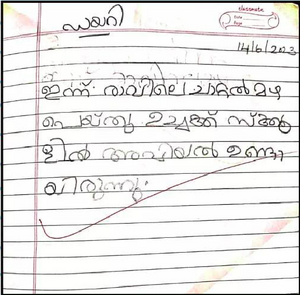 classmate
Date
Page
ഡയറി
14/6/2023
ഇന്ന് രാവിലെ ചാറ്റൽ മഴ
പെയ്തു ഉച്ചക്ക് സ്ക്കൂ
ളിൽ അവിയൽ ഉണ്ടാ
യിരുന്നു.